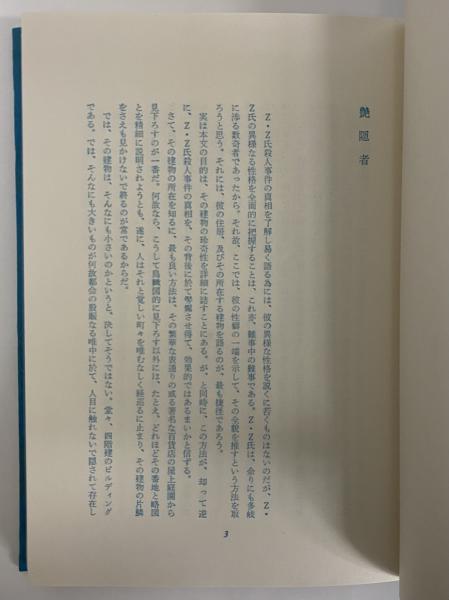 艶隠者
Z・Z氏殺人事件の真相を了解し易く語る為には、彼の異様な性格を説くに若くものはないのだが、Z・
Z氏の異様なる性格を全面的に把握することは、これ亦、難事中の難事である。Z・Z氏は、余りにも多岐
に渉る数奇者であったから。それ故、ここでは、彼の性癖の一端を示して、その全貌を推すという方法を取
ろうと思う。それには、彼の住居、及びその所在する建物を語るのが、最も捷径であろう。
実は本文の目的は、その建物の珍奇性を詳細に誌すことにある。が、と同時に、この方法が、却って逆
に、Z・Z氏殺人事件の真相を、その背後に於て髣髴させ得て、効果的ではあるまいかと信ずる。
さて、その建物の所在を知るに、最も良い方法は、その繁華な表通りの或る著名な百貨店の屋上庭園から
見下ろすのが一番だ。何故なら、こうして鳥瞰図的に見下ろす以外には、たとえ、どれほどその番地と略図
とを精細に説明されようとも、遂に、人はそれと覚しい町々を唯むなしく経巡るに止まり、その建物の片鱗
をさえも見かけないで終るのが常であるからだ。
では、その建物は、そんなにも小さいのかというと、決してそうではない。堂々、四階建のビルディング
である。では、そんなにも大きいものが何故都会の殷賑なる唯中に於て、人目に触れないで隠されて存在し
3